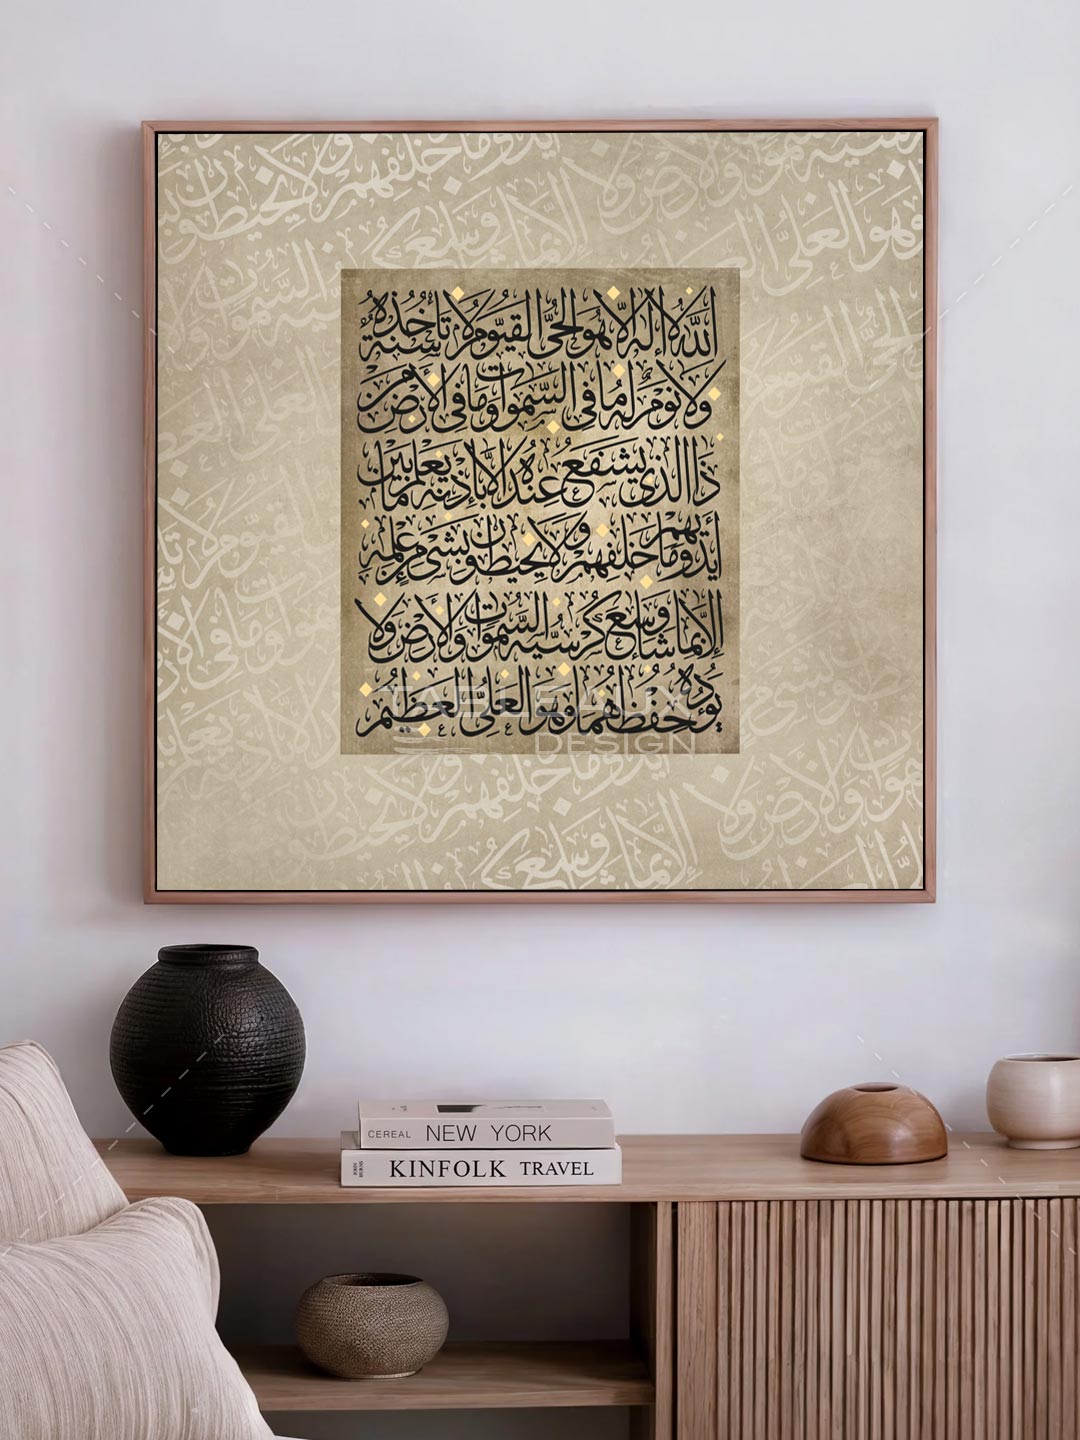 الله لا إله إلا هو الحي القيوم لا تأخذه سنة
ولا نوم له ما في السموات وما في الأرض من
ذا الذي يشفع عنده إلا بإذنه يعلم ما بين
أيديهم وما خلفهم ولا يحيطون بشيء من علمه
إلا بما شاء وسع كرسيه السموات والأرض ولا
يؤده حفظهما وهو العلي العظيم
TABLEAUX
DESIGN
CEREAL NEW YORK
KINFOLK TRAVEL